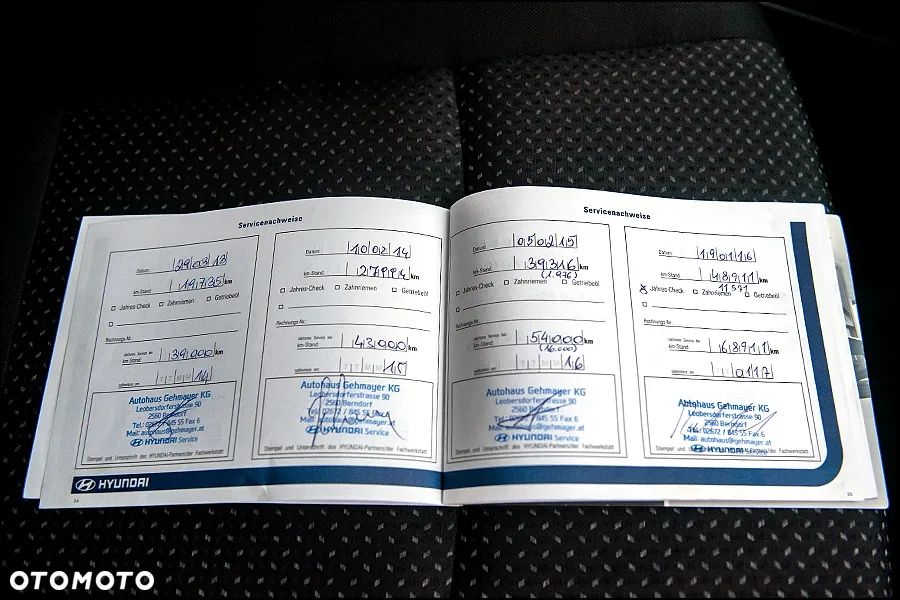 Servicenachweise
Datum: 290313
km-Stand: 19735 km
Jahres-Check Zahnriemen Getriebeöl
Rechnungs-Nr.
nächstes Service bei
km-Stand: 39000 km
spätestens am: T T M M 14
Autohaus Gehmayer KG
Leobersdorferstrasse 90
2560 Berndorf
Tel.: 02672 / 845 55 Fax 6
Mail: autohaus@gehmayer.at
HYUNDAI Service
Stempel und Unterschrift des HYUNDAI-Partners/der Fachwerkstatt
Datum: 100214
km-Stand: 27994 km
Jahres-Check Zahnriemen Getriebeöl
Rechnungs-Nr.
nächstes Service bei
km-Stand: 43000 km
spätestens am: T T M M 15
Autohaus Gehmayer KG
Leobersdorferstrasse 90
2560 Berndorf
Tel.: 02672 / 845 55 Fax 6
Mail: autohaus@gehmayer.at
HYUNDAI Service
Stempel und Unterschrift des HYUNDAI-Partners/der Fachwerkstatt
HYUNDAI
34
Servicenachweise
Datum: 050215
km-Stand: 39316 km
(1.976)
Jahres-Check Zahnriemen Getriebeöl
Rechnungs-Nr.
nächstes Service bei
km-Stand: 54000 km
(16.000)
spätestens am: T T M M 16
Autohaus Gehmayer KG
Leobersdorferstrasse 90
2560 Berndorf
Tel.: 02672 / 845 55 Fax 6
Mail: autohaus@gehmayer.at
HYUNDAI Service
Stempel und Unterschrift des HYUNDAI-Partners/der Fachwerkstatt
Datum: 190116
km-Stand: 48911 km
11591
Jahres-Check Zahnriemen Getriebeöl
Rechnungs-Nr.
nächstes Service bei
km-Stand: 68911 km
spätestens am: 0117
Autohaus Gehmayer KG
Leobersdorferstrasse 90
2560 Berndorf
Tel.: 02672 / 845 55 Fax 6
Mail: autohaus@gehmayer.at
HYUNDAI Service
Stempel und Unterschrift des HYUNDAI-Partners/der Fachwerkstatt
35
OTOMOTO